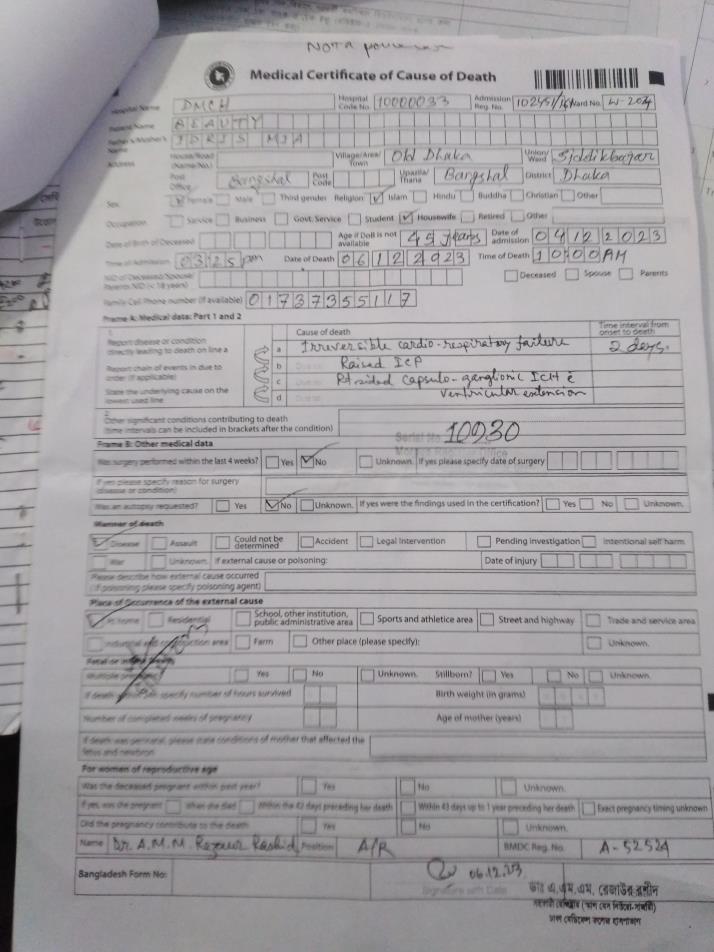 NOT a police case
Medical Certificate of Cause of Death
Hospital Name DMCH Hospital Code No. 10000033 Admission Reg. No. Ward No. W-204
Patient Name BEAUTY
Father's/Mother's Name IDRIS MIA
Address House/Road (Name/No.) Village/Area/Town Old Dhaka Union/Ward Siddikbazar
Post Office Bangshal Post Code Upazila/Thana Bangshal District Dhaka
Sex Female Male Third gender Religion Islam Hindu Buddha Christian Other
Occupation Service Business Govt. Service Student Housewife Retired Other
Date of Birth of Deceased Age if DoB is not available 45 years Date of admission 04122023
Time of Admission 0325 pm Date of Death 06122923 Time of Death 1000AM
NID of Deceased/Spouse/Parents NID (< 18 years) Deceased Spouse Parents
Family Cell Phone number (if available) 01737355117
Frame A: Medical data: Part 1 and 2
1. Cause of death Time interval from onset to death
Report disease or condition directly leading to death on line a a Irreversible cardio-respiratory failure 2 days.
Report chain of events in due to order (if applicable) b Due to Raised ICP
c Due to Rt sided capsulo-ganglionic ICH c̄
State the underlying cause on the lowest used line d Due to ventricular extension
2. Other significant conditions contributing to death (time intervals can be included in brackets after the condition)
Serial No. 10930
Frame B: Other medical data
Was surgery performed within the last 4 weeks? Yes No Unknown. If yes please specify date of surgery
If yes please specify reason for surgery (disease or condition)
Was an autopsy requested? Yes No Unknown. If yes were the findings used in the certification? Yes No Unknown.
Manner of death
Disease Assault Could not be determined Accident Legal Intervention Pending investigation Intentional self harm
War Unknown. If external cause or poisoning: Date of injury
Please describe how external cause occurred (if poisoning please specify poisoning agent)
Place of Occurrence of the external cause
At home Residential School, other institution, public administrative area Sports and athletice area Street and highway Trade and service area
Industrial and construction area Farm Other place (please specify): Unknown.
Fetal or infant Death
Multiple pregnancy? Yes No Unknown. Stillborn? Yes No Unknown.
If death within 24h specify number of hours survived Birth weight (in grams)
Number of completed weeks of pregnancy Age of mother (years)
If death was perinatal, please state conditions of mother that affected the fetus and newborn
For women of reproductive age
Was the deceased pregnant within past year? Yes No Unknown.
If yes, was she pregnant When she died Within the 42 days preceding her death Within 43 days up to 1 year preceding her death Exact pregnancy timing unknown
Did the pregnancy contribute to the death Yes No Unknown.
Name Dr. A.M.M. Rezaur Rashid Position A/R BMDC Reg. No. A-52524
Bangladesh Form No: 06.12.23
Signature with Date
ডাঃ এ.এম.এম. রেজাউর রশীদ